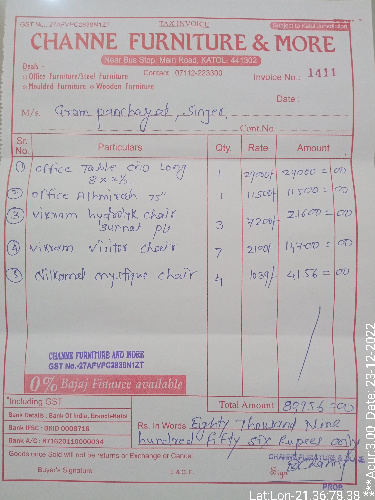 GST No.-27AFVPC2839N1ZT TAX INVOICE Subject to Katol Jurisdiction
CHANNE FURNITURE & MORE
Near Bus Stop, Main Road, KATOL- 441302
Deals -
Contact: 07112-223300
Office Furniture/Steel Furniture
Moulded Furniture Wooden Furniture
Invoice No.: 1411
Date :
M/s. Gram panchayat, Singer,
Cont.No.
Sr. No. Particulars Qty. Rate Amount
① office Table CRO Long 1 29000/- 29000 = 00
8 x 2½
② office Almirah 75" 1 11500/- 11500 = 00
③ vikram hydrolyk chair 3 7200/- 21600 = 00
④ vikram visitor chair 7 2100/- 14700 = 00
⑤ Nilkamal mystique chair 4 1039/- 4156 = 00
CHANNE FURNITURE AND MORE
GST No.-27AFVPC2839N1ZT
0% Bajaj Finance available
*Including GST
Total Amount
Bank Details : Bank Of India, Branch-Katol
Bank IFSC : BKID 0008716
Bank A/C: 871620110000034
Rs. In Words Eighty Thousand Nine
hundred fifty six Rupees only
Goods once Sold will not be returns or Exchange or Cancel
CHANNE FURNITURE &
Buyer's Signature E.& O.E. Sign
PROP.
Lat,Lon-21.36,78.38
***Acur:3.00 ,Date:23-12-2022